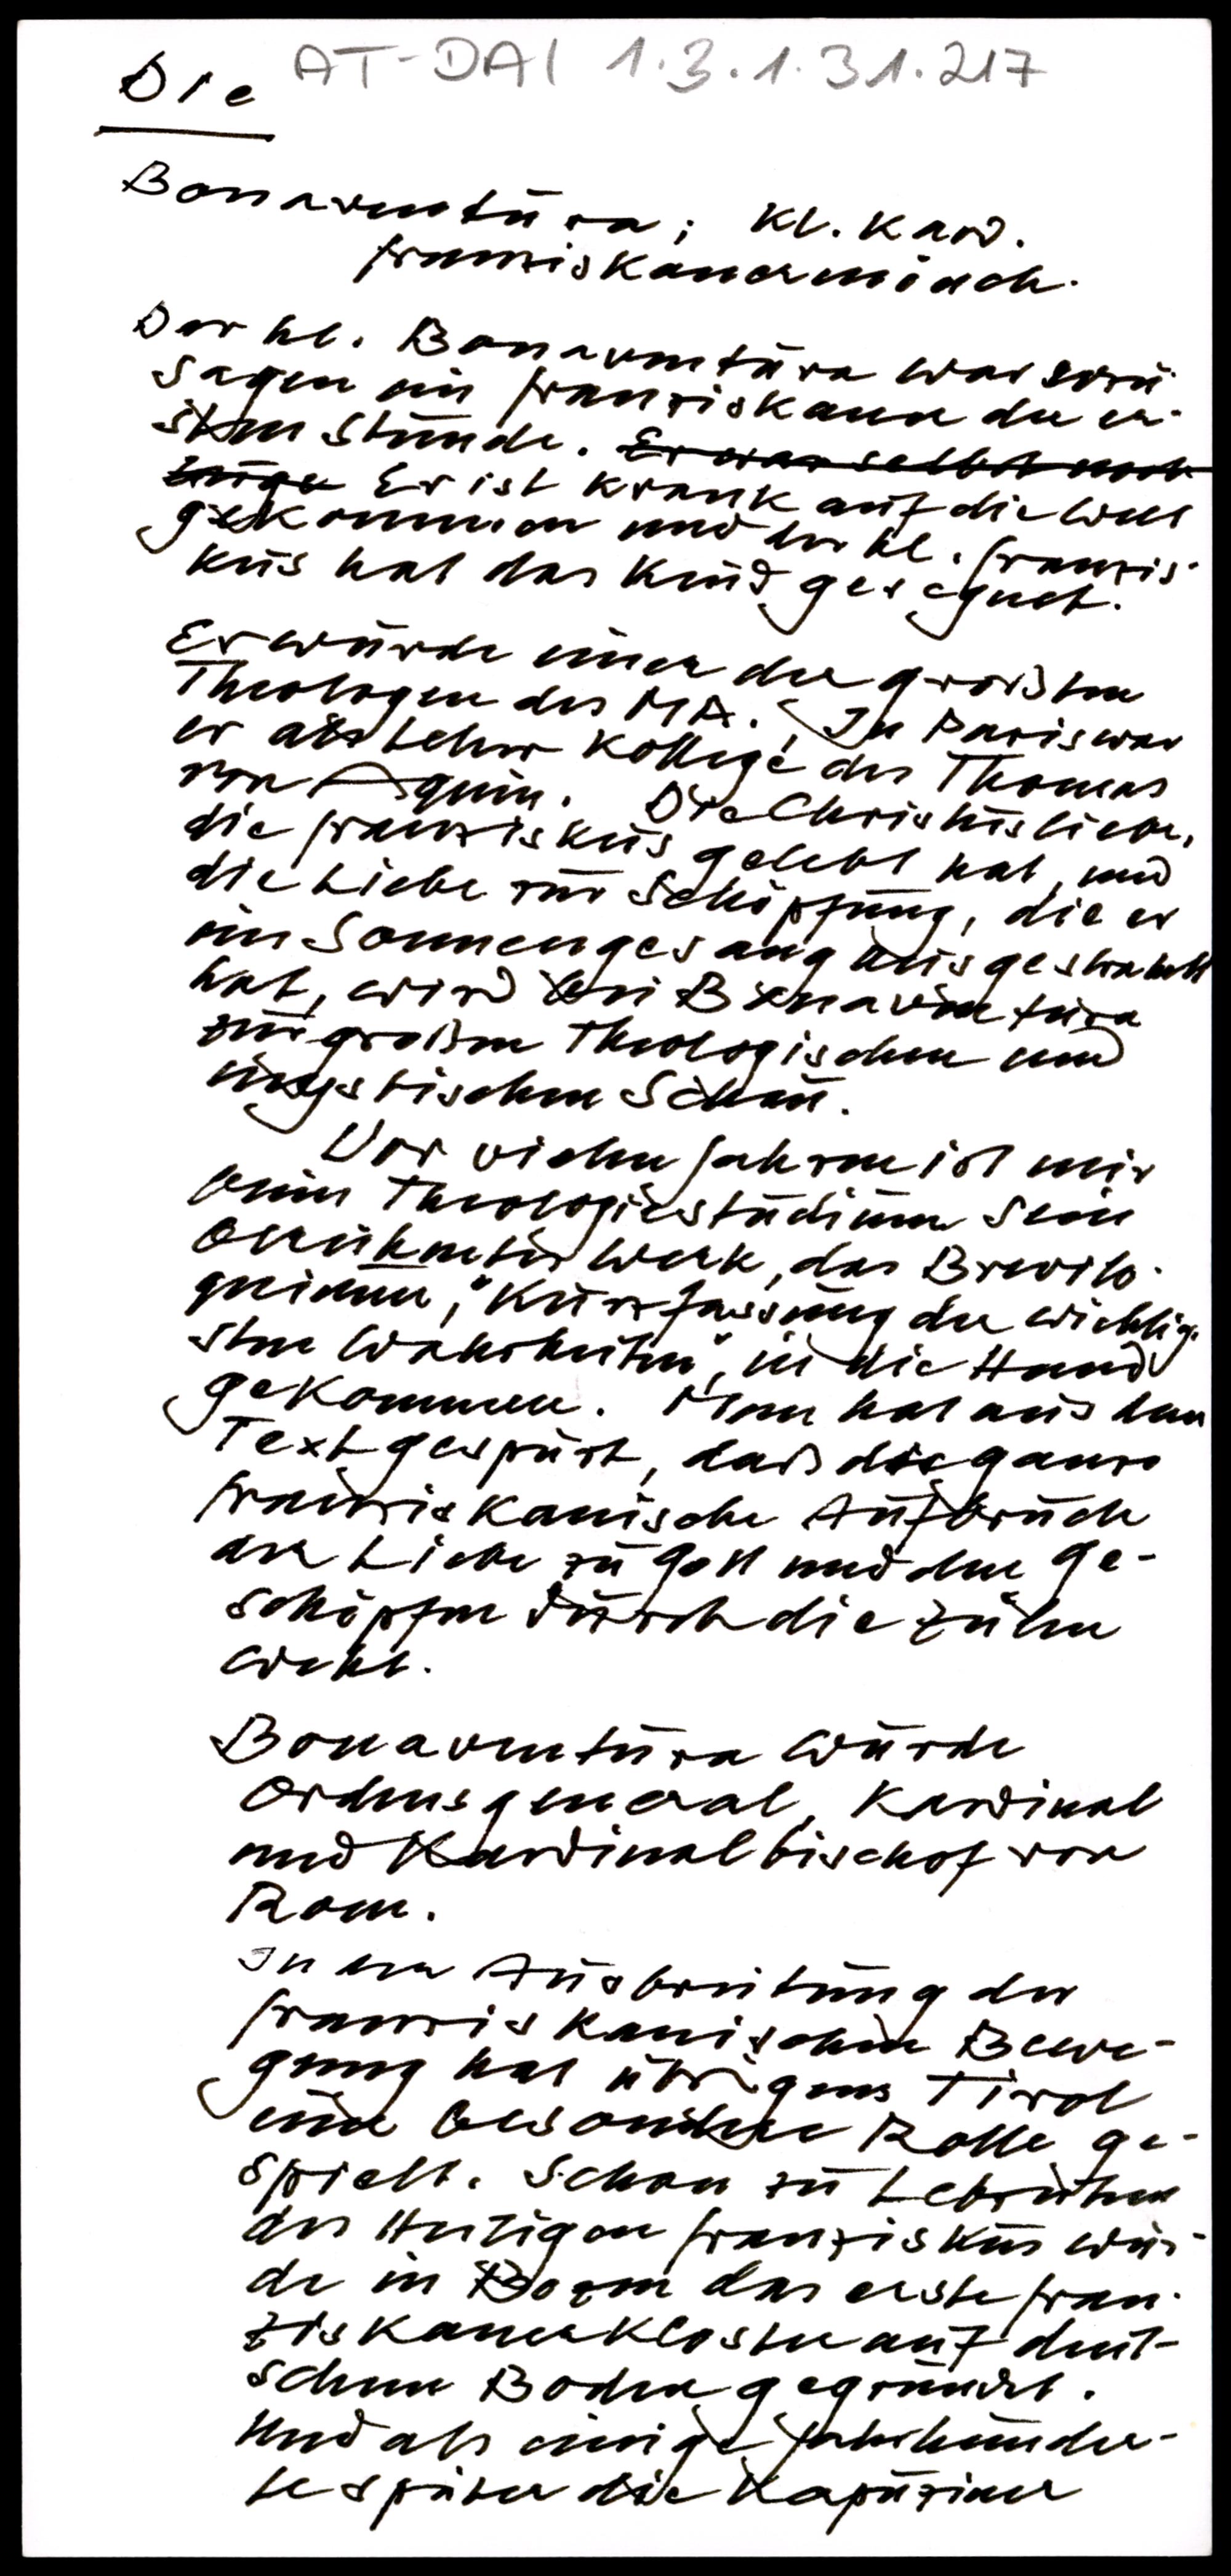 AT-DAI 1.3.1.31.217
Die
Bonaventura; Kl. Kard.
Franziskanermönch.
Der hl. Bonaventura war sozu
sagen ein Franziskaner der er-
sten Stunde. Er war selbst noch
Zeuge Er ist krank auf die Welt
gekommen und der hl. Franzis-
kus hat das Kind gesegnet.
Er wurde einer der größten
Theologen des MA. In Paris war
er als Lehrer Kollege des Thomas
von Aquin. Die Christusliebe,
die Franziskus gelebt hat, und
die Liebe zur Schöpfung, die er
im Sonnengesang ausgestrahlt
hat, wird bei Bonaventura
zur großen theologischen und
mystischen Schau.
Vor vielen Jahren ist mir
beim Theologiestudium sein
berühmtes Werk, das Brevilo-
quium, "Kurzfassung der wichtig-
sten Wahrheiten", in die Hand
gekommen. Man hat aus dem
Text gespürt, daß der ganze
franziskanische Aufbruch
der Liebe zu Gott und den Ge-
schöpfen durch die Zeilen
weht.
Bonaventura wurde
Ordensgeneral, Kardinal
und Kardinalbischof von
Rom.
In der Ausbreitung der
franziskanischen Bewe-
gung hat übrigens Tirol
eine besondere Rolle ge-
spielt. Schon zu Lebzeiten
des Heiligen Franziskus wur-
de in Bozen das erste Fran-
ziskanerkloster auf deut-
schem Boden gegründet.
Und als einige Jahrhunder-
te später die Kapuziner